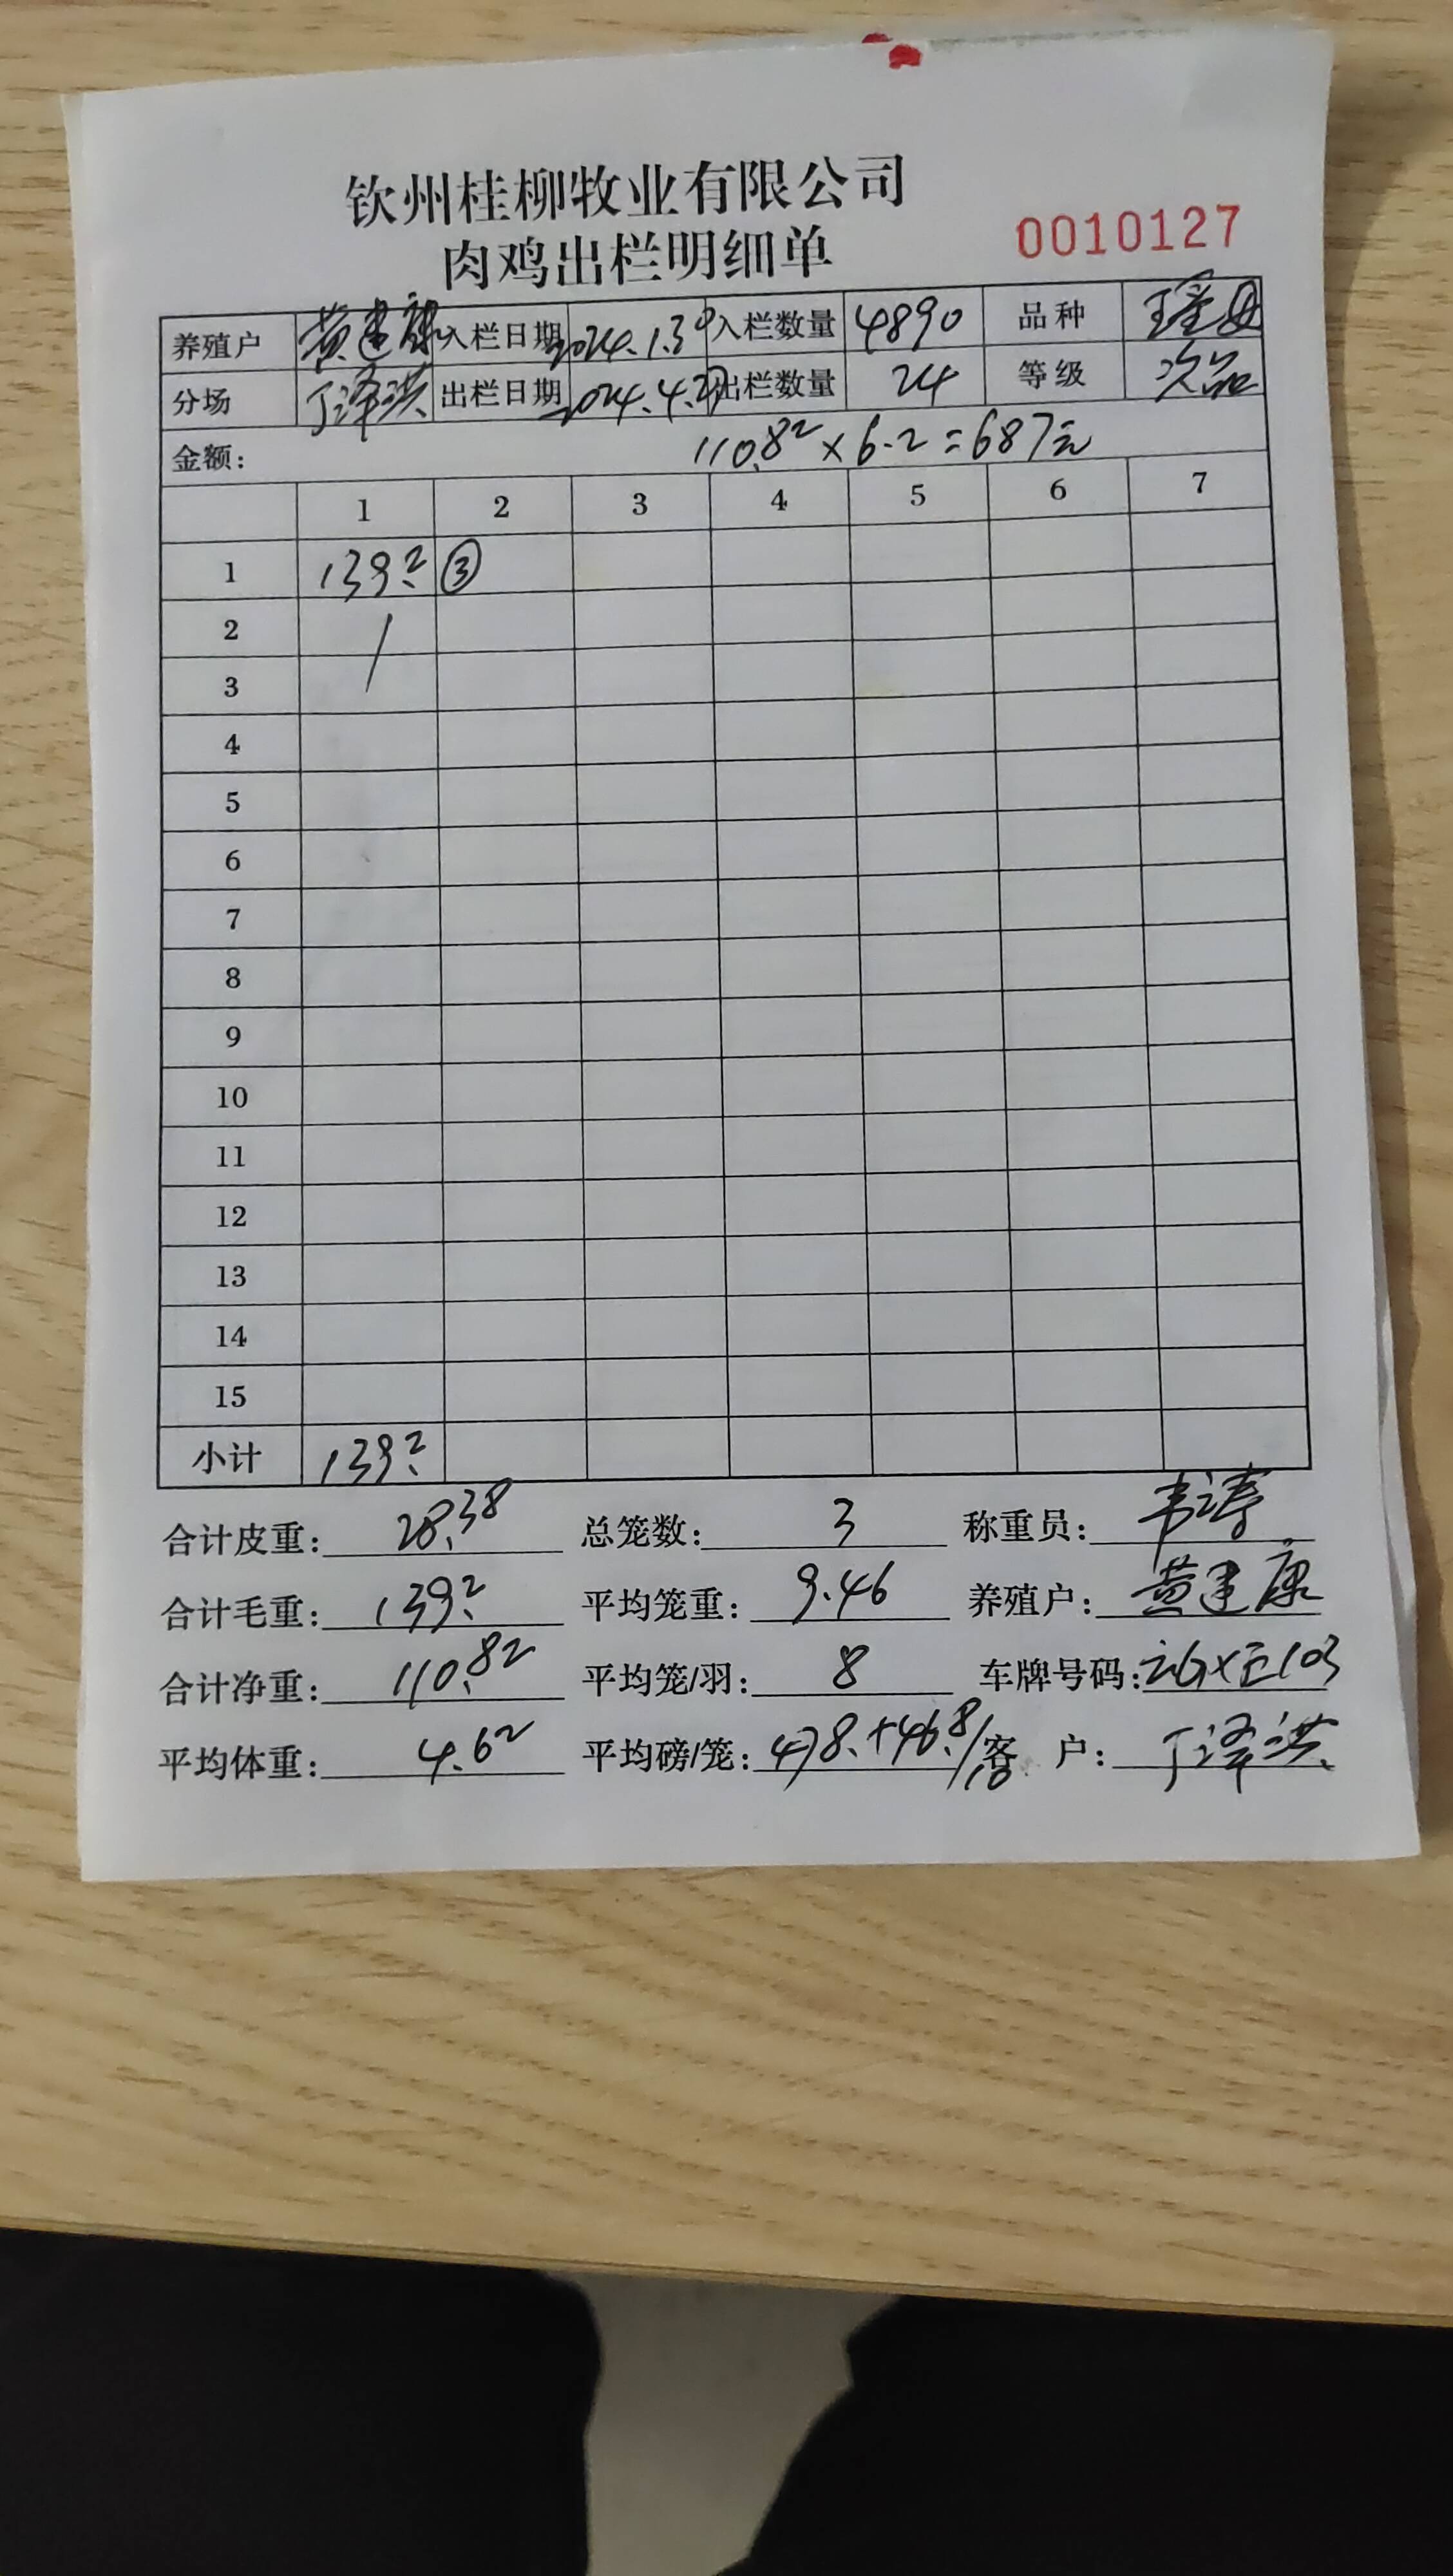 钦州桂柳牧业有限公司
肉鸡出栏明细单
0010127
养殖户 黄建康 入栏日期 2024.1.30 入栏数量 4890 品种
分场 丁泽洪 出栏日期 2024.4.27 出栏数量 24 等级 次品
金额: 110.82×6.2=687元
1 2 3 4 5 6 7
1 139.2 ③
2
3
4
5
6
7
8
9
10
11
12
13
14
15
小计 139.2
合计皮重: 28.38 总笼数: 3 称重员: 韦涛
合计毛重: 139.2 平均笼重: 9.46 养殖户: 黄建康
合计净重: 110.82 平均笼/羽: 8 车牌号码:
平均体重: 4.62 平均磅/笼: 47.8+46.8/10 客 户: 丁泽洪